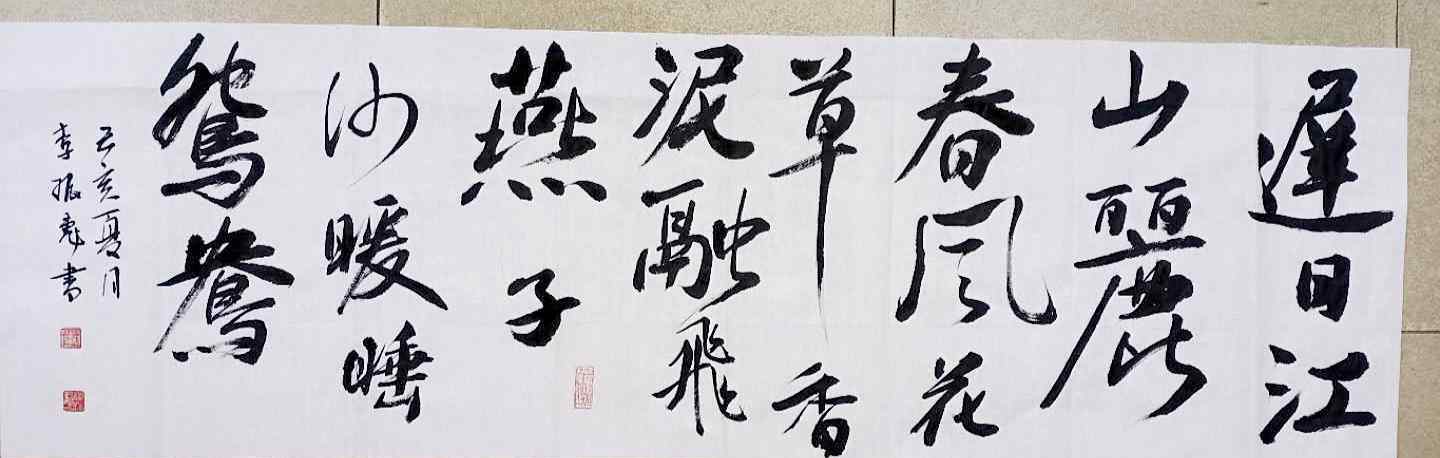 遲日江
山麗
春風花
草香
泥融飛
燕子
沙暖睡
鴛鴦
己亥夏月
李振書